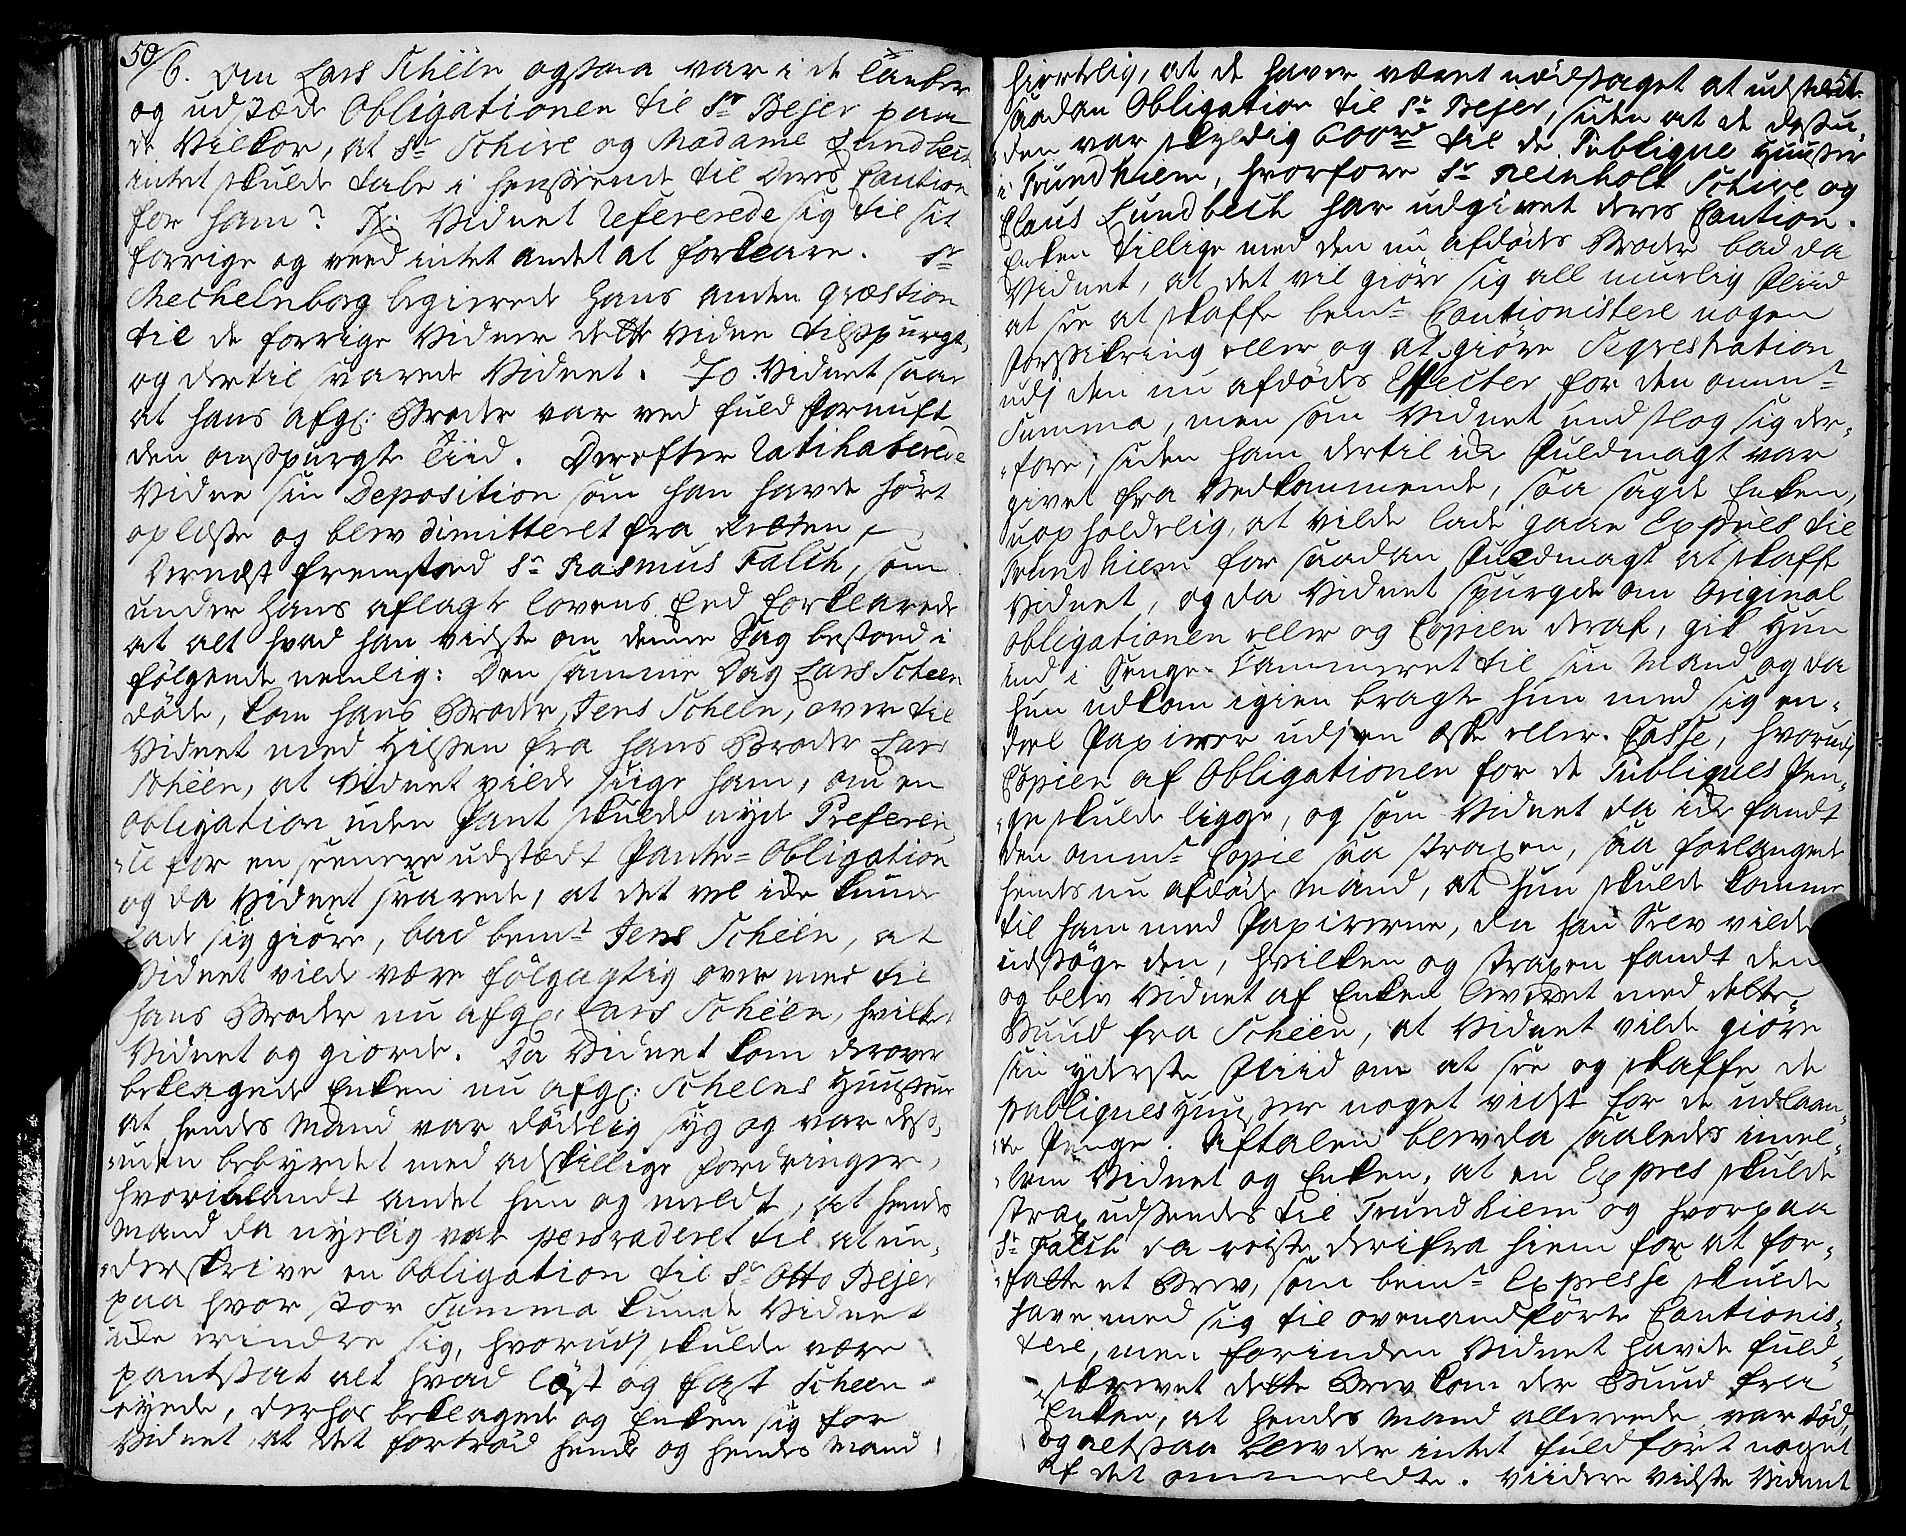 50
6. Om Lars Schêen ogsaa var i de tanker
og udstæde Obligationen til Sr Bejer paa
de Vilkor, at Sr Schive og Madame Lundbech
intet skulde tabe i henseende til deres Caution
for ham? Rx: Vidnet refererede sig til sit
forrige og veed intet andet at forklare. Sr
Mechelnborg begierede hans anden Qvæstion
til de forrige Vidner dette Vidne tilspurgt,
og dertil svarede Vidnet. Jo Vidnet saae
at hans afg: Broder var ved fuld Fornuft
den omspurgte Tiid. Derefter Ratihaberede
Vidne sin Deposition som han havde hørt
oplæste og blev dimitteret fra Retten
Dernæst fremstoed Sr Rasmus Falch, som
under hans aflagte lovens Eed forklarede
at alt hvad han vidste om denne Sag bestoed i
følgende nemlig: Den samme Dag Lars Scheen
døde, kom hans Broder, Jens Scheen, over til
Vidnet med Hilsen fra hans Broder Lars
Schêen, at Vidnet vilde sige ham, om en
Obligation uden Pant skulde nyde Preferen-
ce for en seenere udstædt Pante-Obligation
og da Vidnet svarede, at det vel icke kunde
lade sig giøre, bad bemte Jens Schêen, at
Vidnet vilde være følgagtig over med til
hans Broder nu afg: Lars Schêen, hvilket
Vidnet og giorde. Da Vidnet kom derover
beklagede Enken nu afg: Scheens Huustrue
at hendes Mand var dødelig syg og var des-
uden bebyrdet med adskillige fordringer,
hvoriblandt andet hun og meldte, at hendes
Mand da nyelig var persvaderet til at un-
derskrive en Obligation til Sr Otto Bejer
paa hvor stor Summa kunde Vidnet
icke erindre sig, hvorudj skulde være
pantsat alt hvad løst og fast Scheen
eyede, derhos beklagede og Enken sig for
Vidnet, at det fortrød hende og hendes Mand
51
hiertelig, at de haver været nødtsaget at udstæde
saadan Obligation til Sr Bejer, siden at de desu-
den var skyldig 600rd til de Publique Huuser
i Trundhiem, hvorfore Sr Reinholt Schive og
Claus Lundbech har udgivet deres Caution.
Enken tillige med den nu afdøde Broder bad da
Vidnet, at det vil giøre sig all muelig Fliid
at see at skaffe bemte Cautionistere nogen
Forsikring eller og at giøre Seqvestration
udj den nu afdødes Effecter for den ommte
Summa, men som Vidnet undslog sig der-
fore, siden ham dertil icke Fuldmagt var
givet fra Vedkommende, saa sagde Enken,
uopholdelig, at vilde lade gaae Expres til
Trundhiem for saadan Fuldmagt at skaffe
Vidnet, og da Vidnet spurgde om Original
Obligationen eller og Copien deraf, gik Hun
ind i Senge-Kammeret til sin Mand og da
hun udkom igien bragte hun med sig en-
deel Papirer udj en Æske eller Casse, hvorudj
Copien af Obligationen for de Publiques Pen-
ge skulde ligge, og som Vidnet da icke fandt
den ommte Copie saa straxen, saa forlangede
hendes nu afdøde Mand, at hun skulde komme
til ham med Papirerne, da han Selv vilde
udsøge den, hvilken og straxen fandt den
og blev Vidnet af Enken leveret med dette
Buud fra Schêen, at Vidnet vilde giøre
sin yderste Fliid om at see og skaffe de
publiques Huuser noget vidst for de udlaan-
te Penge. Aftalen blev da saaledes imel-
lem Vidnet og Enken, at en Expres skulde
strax udsendes til Trundhiem og hvorpaa
Sr Falch da reiste derifra hiem for at for-
fatte et Brev, som bemte Expresse skulde
have med sig til ovenandførte Cautionis-
tere, men forinden Vidnet havde fuld-
skrevet dette Brev kom der Buud fra
Enken, at hendes Mand allereede var død,
og altsaa blev der intet fuldført noget
af det ommeldte. Viidere vidste Vidnet